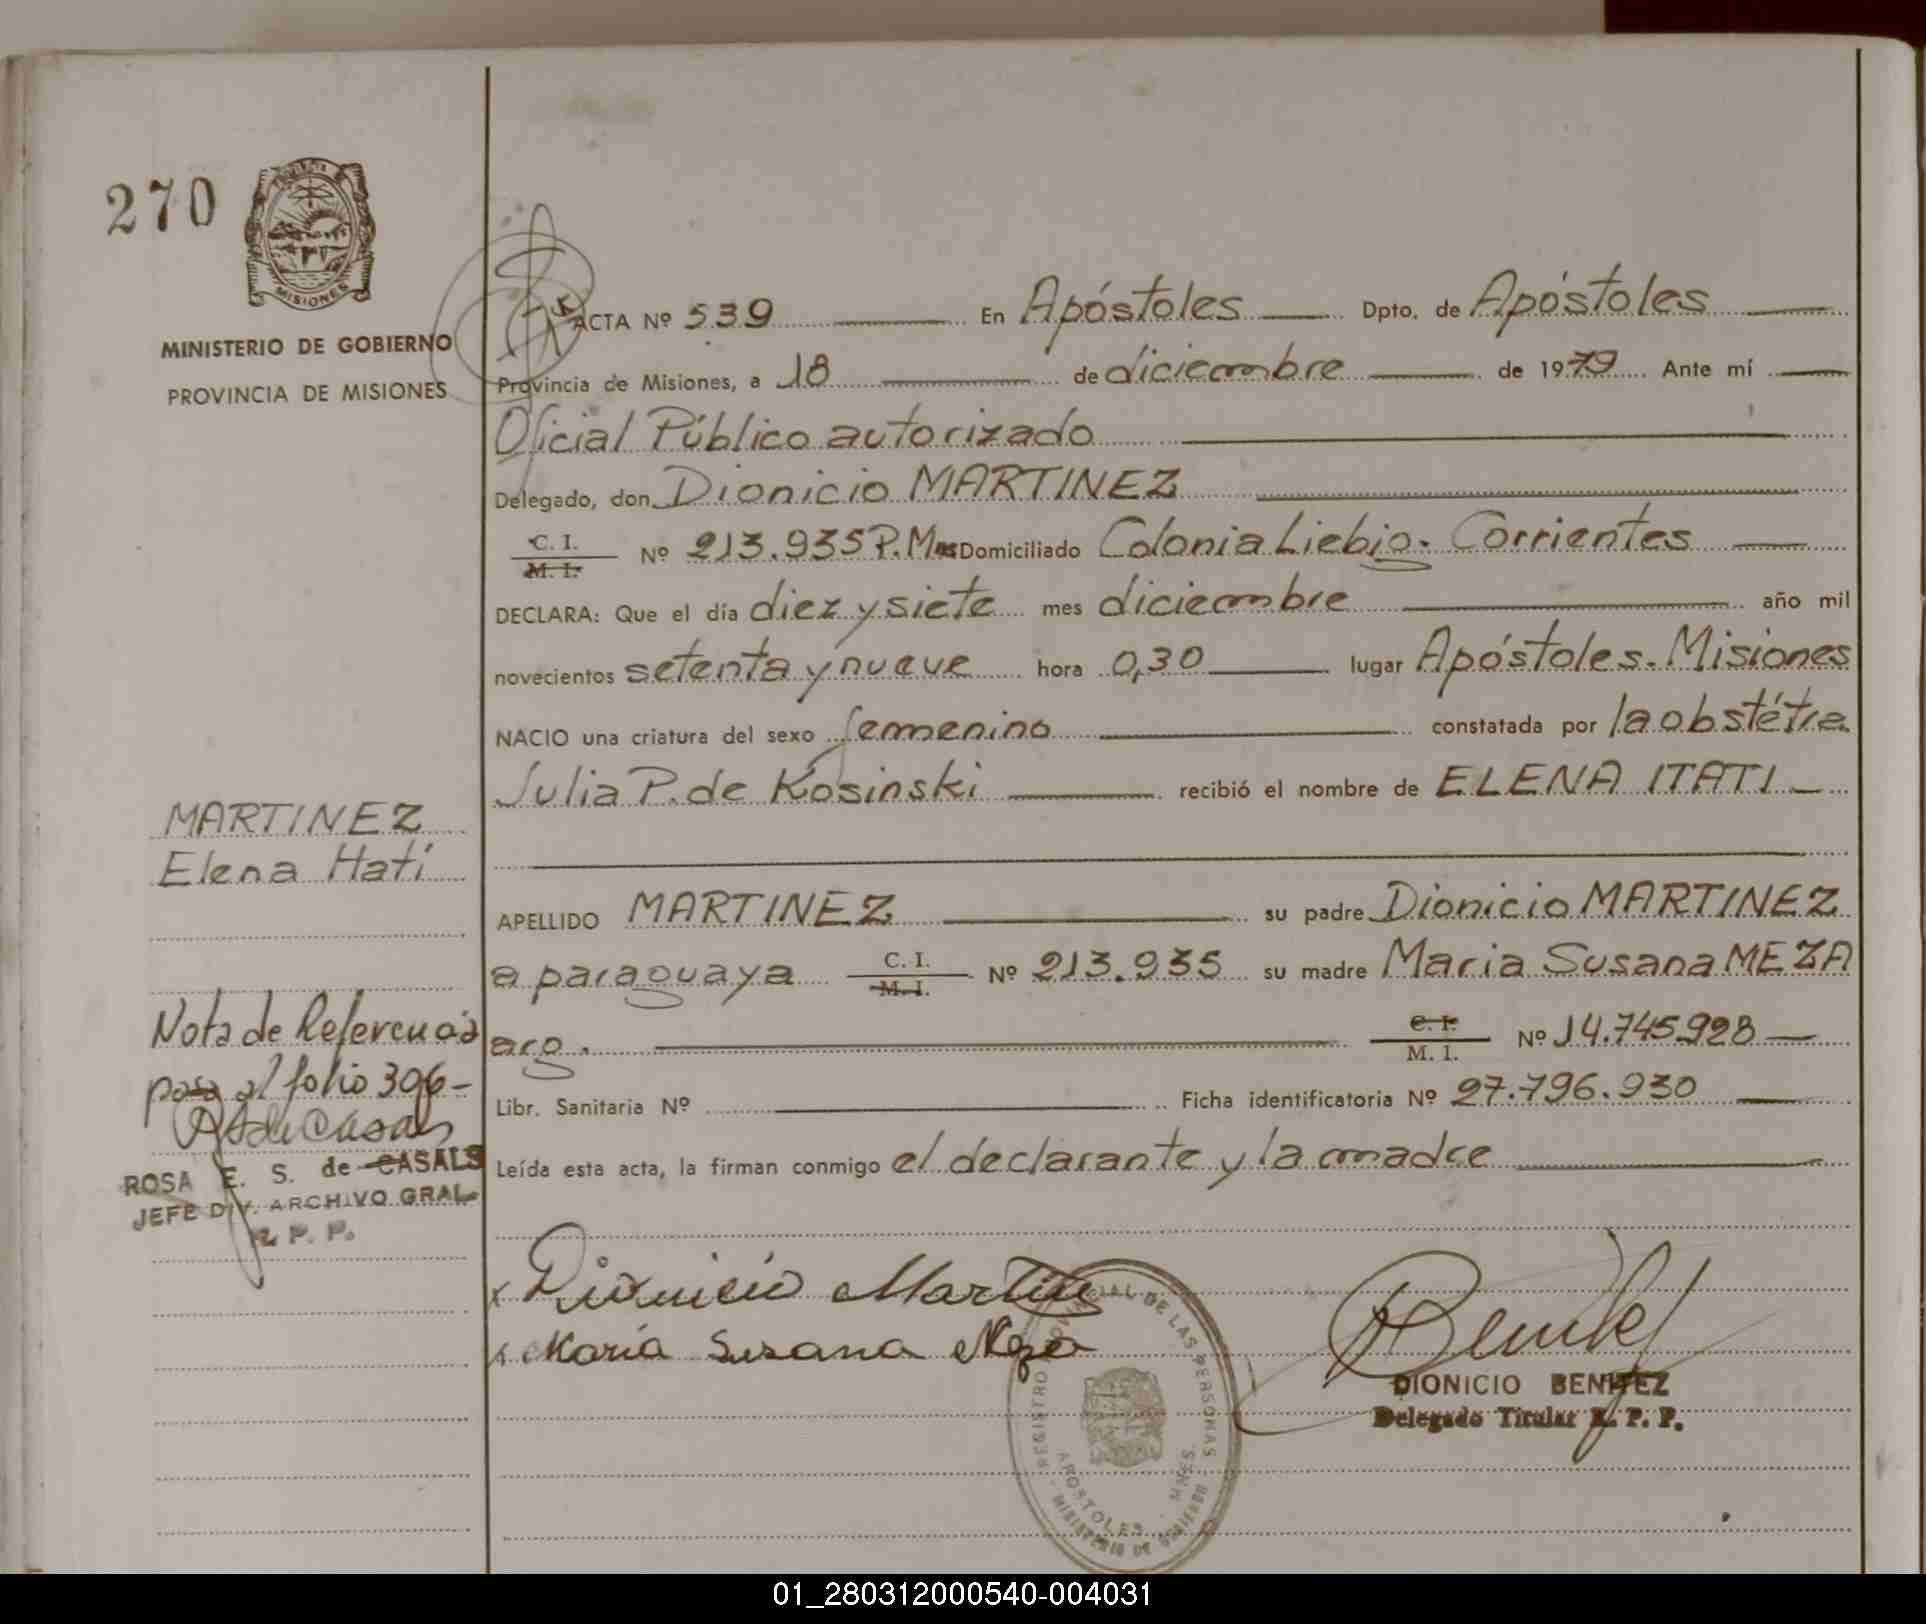 270
PROVINCIA
MISIONES
MINISTERIO DE GOBIERNO
PROVINCIA DE MISIONES
ACTA Nº 539 En Apóstoles Dpto. de Apóstoles
Provincia de Misiones, a 18 de diciembre de 1979 Ante mí
Oficial Público autorizado
Delegado, don Dionicio MARTINEZ
C. I.
M. I. Nº 213.935 P.Mnes Domiciliado Colonia Liebig. Corrientes
DECLARA: Que el día diez y siete mes diciembre año mil
novecientos setenta y nueve hora 0,30 lugar Apóstoles. Misiones
NACIO una criatura del sexo femenino constatada por la obstétra
Julia P. de Kosinski recibió el nombre de ELENA ITATI
MARTINEZ
Elena Itatí
APELLIDO MARTINEZ su padre Dionicio MARTINEZ
paraguaya C. I. M. I. Nº 213.935 su madre Maria Susana MEZA
arg. C. I. M. I. Nº 14.745.928
Libr. Sanitaria Nº Ficha identificatoria Nº 27.796.930
Leída esta acta, la firman conmigo el declarante y la madre
Nota de Referencia
pasa al folio 396-
ROSA E. S. de CASALS
JEFE DIV. ARCHIVO GRAL.
R. P. P.
x Dionicio Martinez
x Maria Susana Meza
REGISTRO PROVINCIAL DE LAS PERSONAS
MINISTERIO DE GOBIERNO
APOSTOLES MNES.
DIONICIO BENITEZ
Delegado Titular R. P. P.
01_280312000540-004031